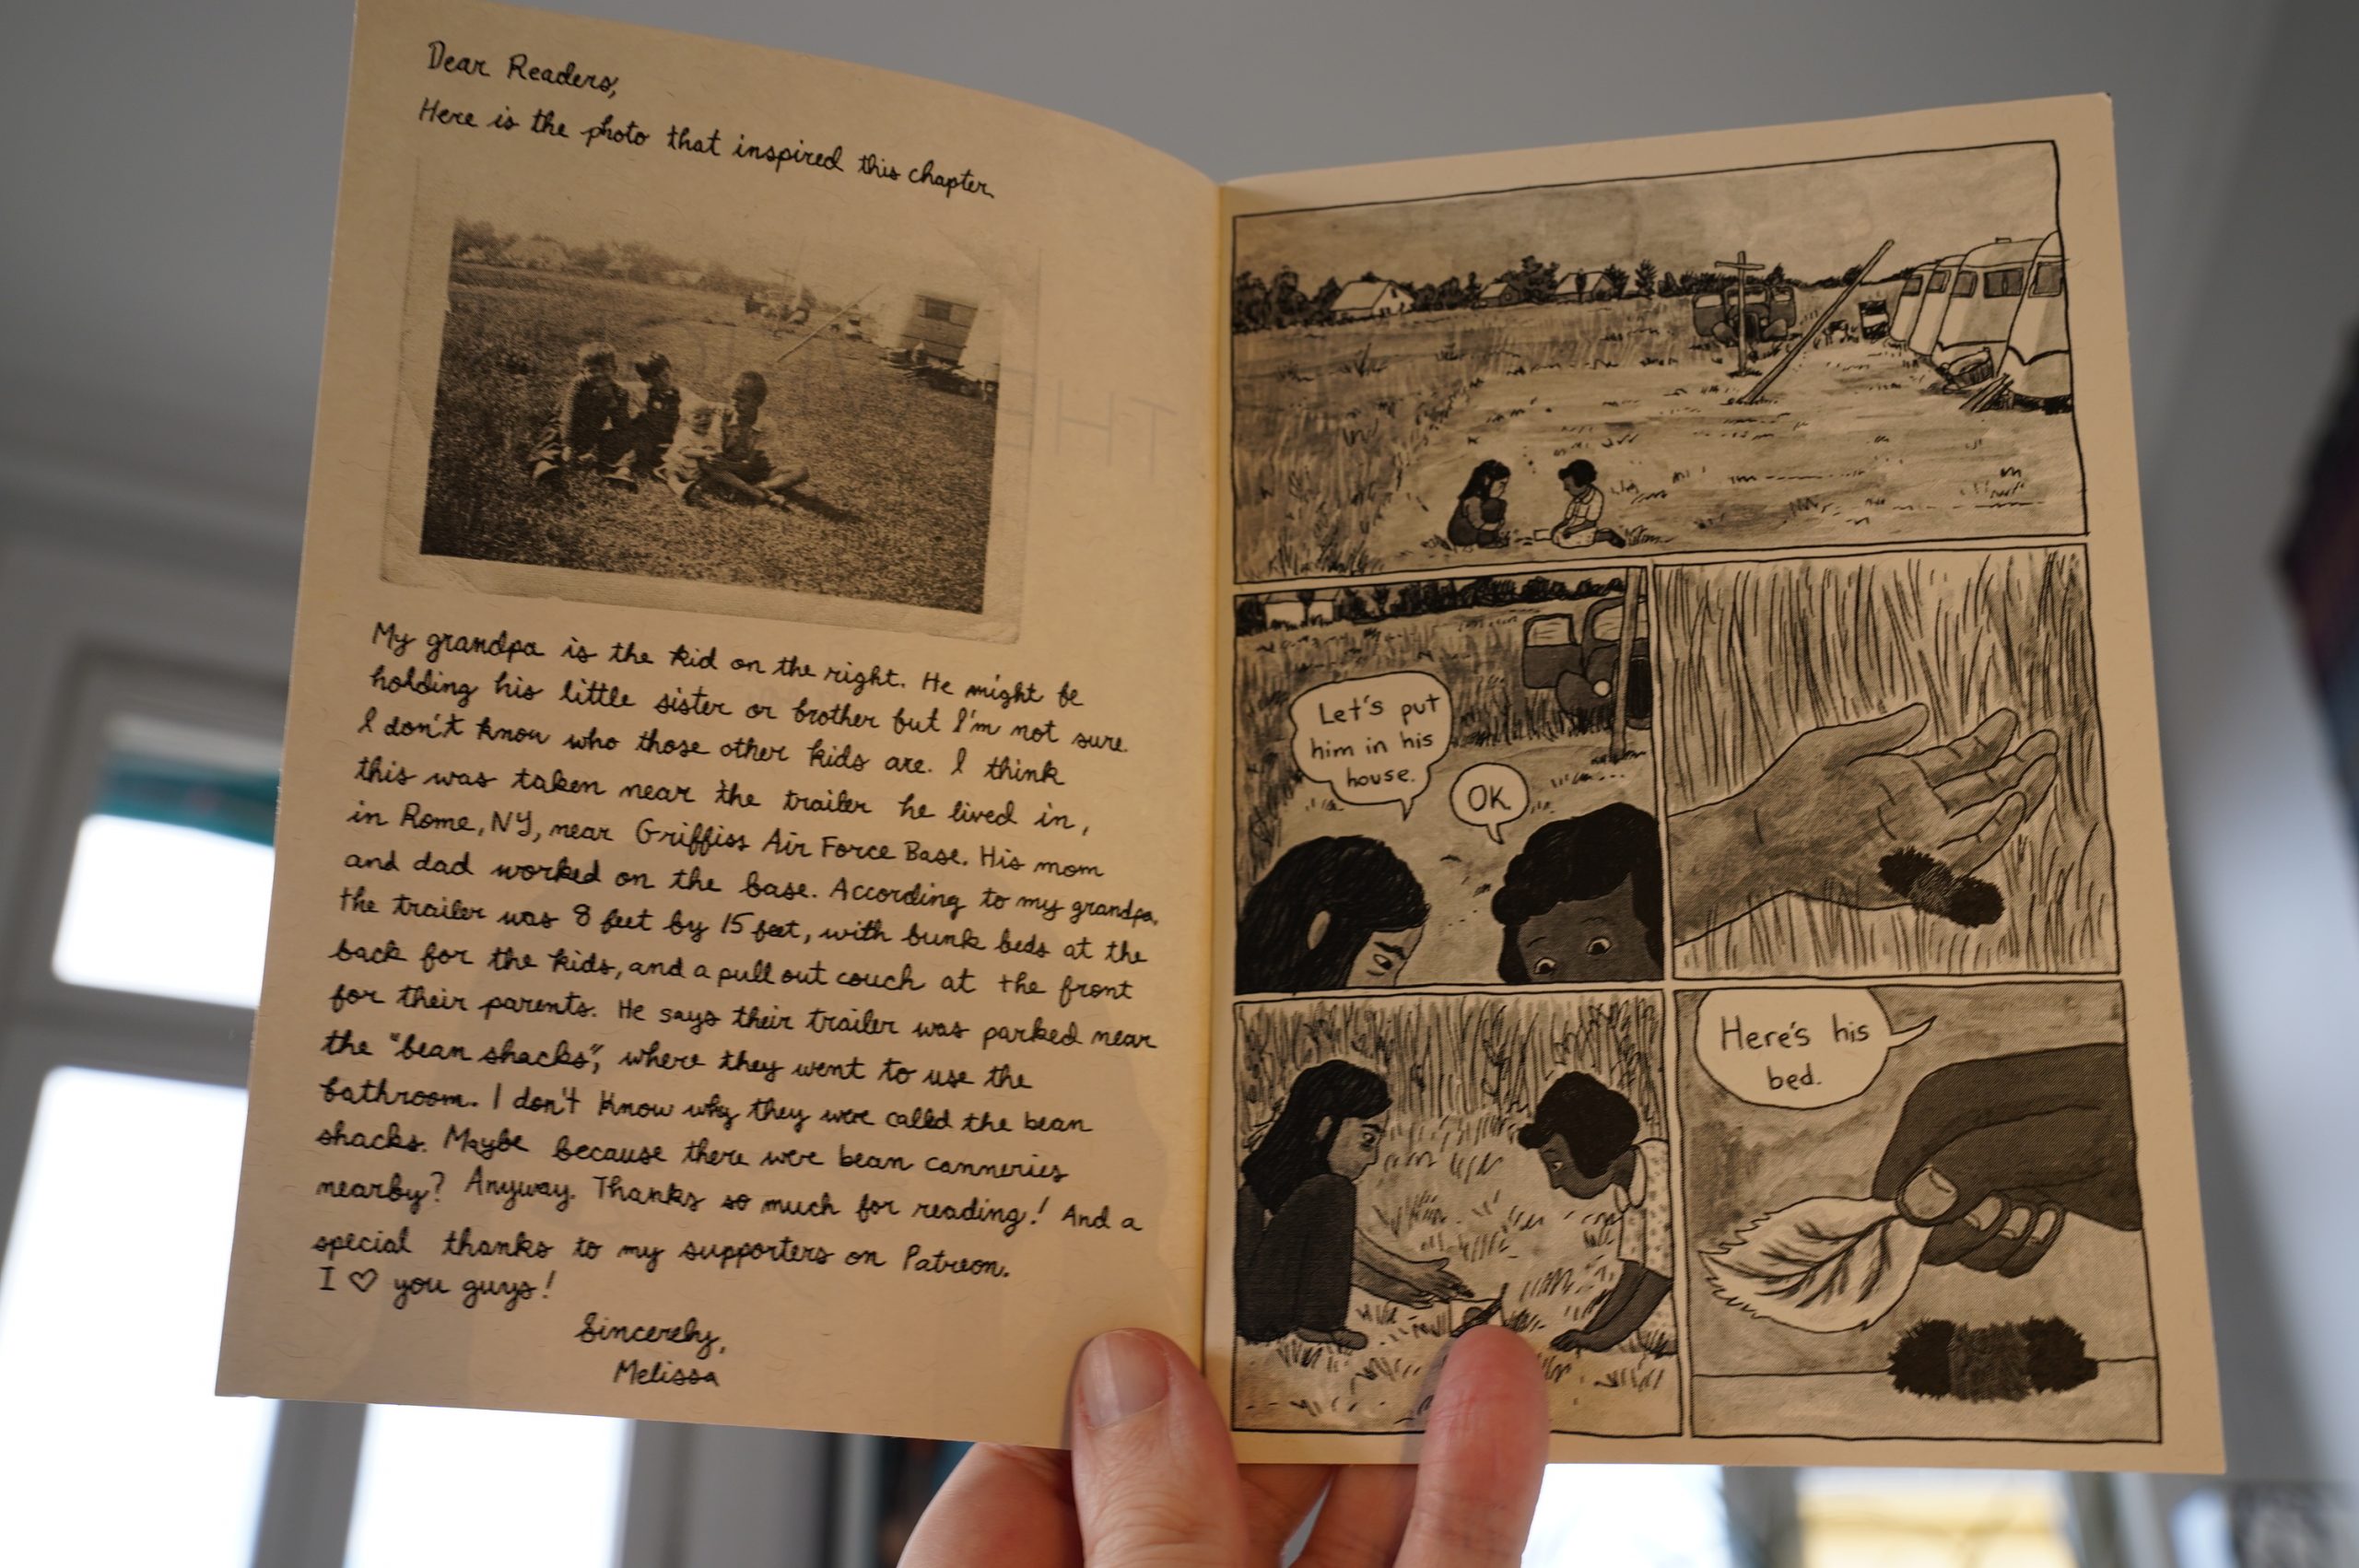 Dear Readers,
Here is the photo that inspired this chapter.
My grandpa is the kid on the right. He might be
holding his little sister or brother but I'm not sure.
I don't know who those other kids are. I think
this was taken near the trailer he lived in,
in Rome, NY, near Griffiss Air Force Base. His mom
and dad worked on the base. According to my grandpa,
the trailer was 8 feet by 15 feet, with bunk beds at the
back for the kids, and a pull out couch at the front
for their parents. He says their trailer was parked near
the "bean shacks", where they went to use the
bathroom. I don't know why they were called the bean
shacks. Maybe because there were bean canneries
nearby? Anyway. Thanks so much for reading! And a
special thanks to my supporters on Patreon.
I ♡ you guys!
Sincerely,
Melissa
Let's put
him in his
house.
OK.
Here's his
bed.